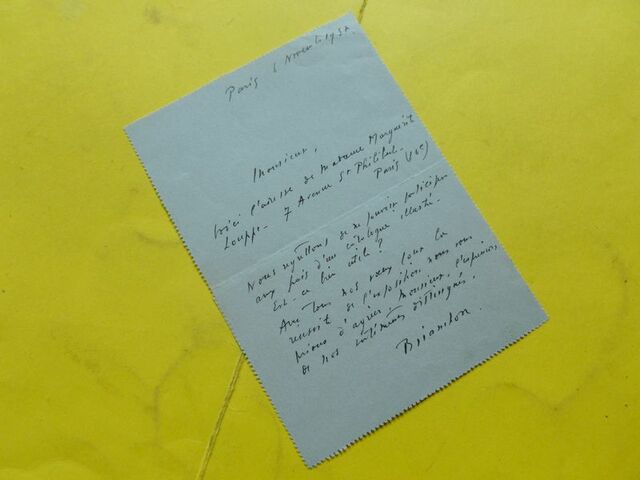 Paris 6 Novembre
Monsieur,
Voici l'adresse de Madame Marguerite
Louppe - 7 Avenue St Philibert -
Paris (16e)
Nous regrettons de ne pouvoir participer
aux frais d'un catalogue illustré.
Est-ce bien utile ?
Avec tous nos vœux pour la
réussite de l'exposition nous vous
prions d'agréer, Monsieur, l'expression
de nos sentiments distingués.
Brianchon.